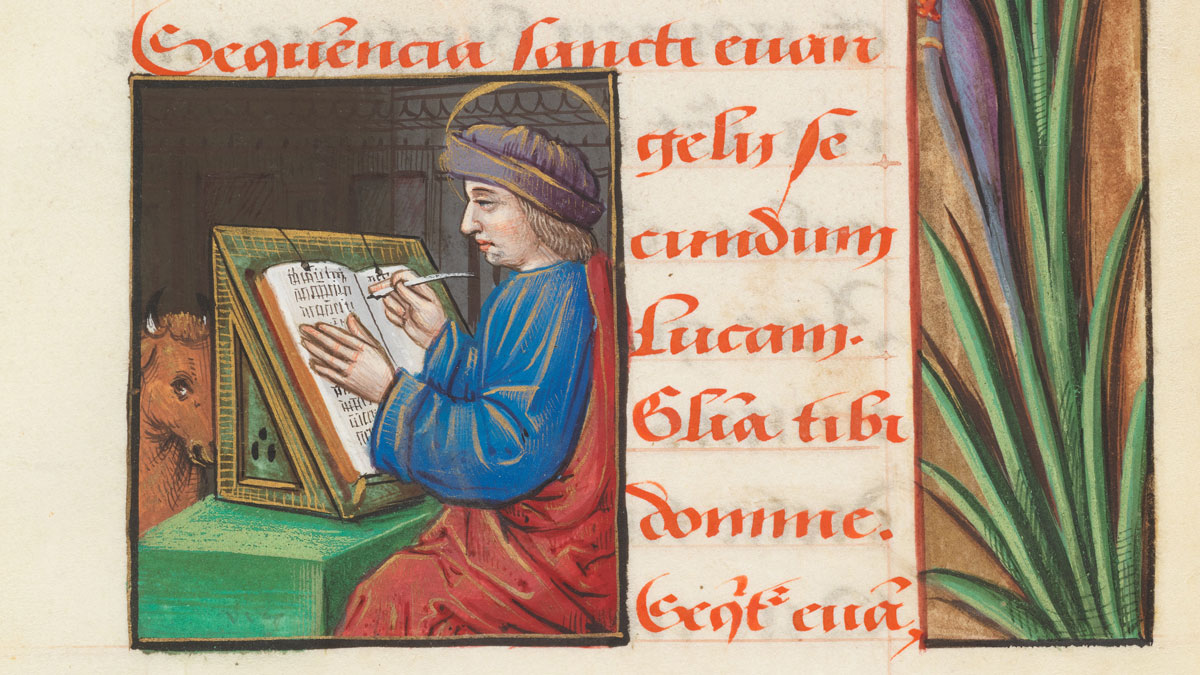 Sequẽncia sancti euan
gelii se
cundum
Lucam.
Glĩa tibi
domine.
Seq̃t᷑ euã,